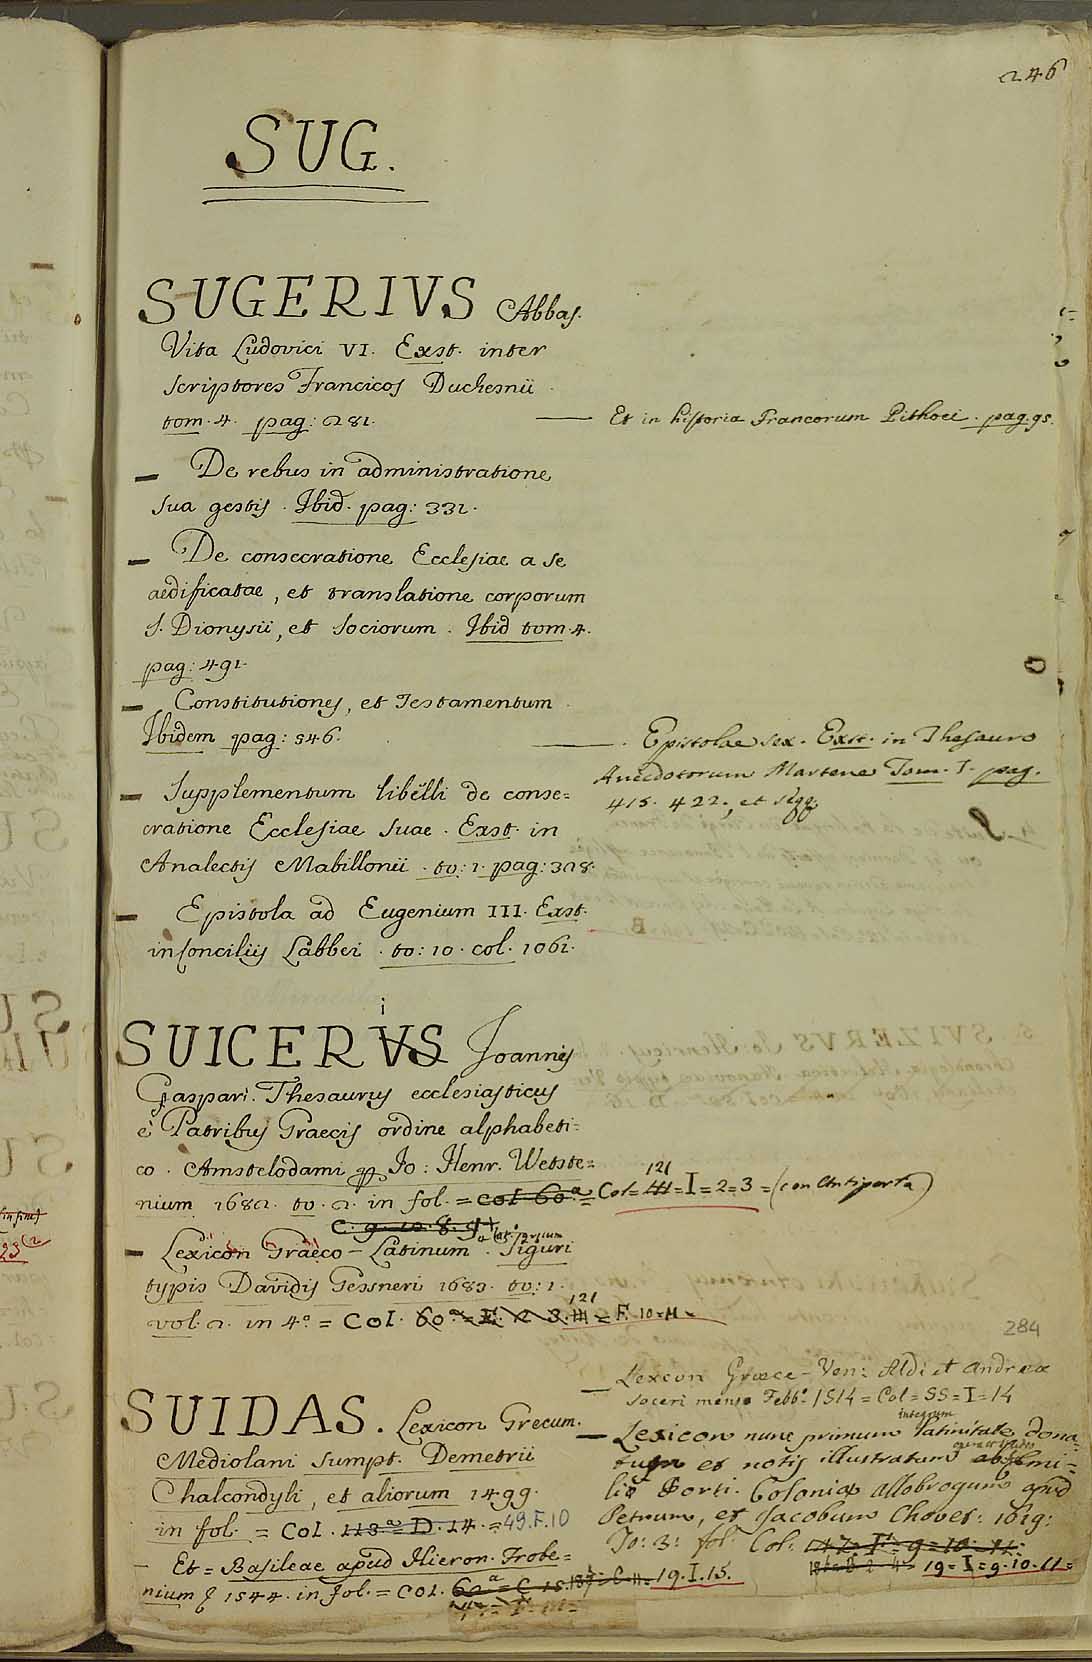 246
SUG.
SUGERIVS Abbas.
Vita Ludovici VI. Exst. inter
scriptores Francicos Duchesnii
tom. 4. pag: 281.
— Et in historia Francorum Pithoei. pag. 95.
— De rebus in administratione
sua gestis. Ibid. pag: 331.
— De consecratione Ecclesiae a se
aedificatae, et translatione corporum
S. Dionysii, et Sociorum. Ibid tom. 4.
pag: 491.
— Constitutiones, et Testamentum
Ibidem pag: 546.
— Epistolae sex. Exst. in Thesauro
Anecdotorum Martene Tom. I. pag.
415. 422., et seqq.
— Supplementum libelli de conse=
cratione Ecclesiae suae. Exst. in
Analectis Mabillonii. to: 1. pag: 328.
— Epistola ad Eugenium III. Exst.
in Conciliis Labbei. to: 10. col. 1061.
SUICERVS i Joannis
Gaspari. Thesaurus ecclesiasticus
e Patribus Graecis ordine alphabeti=
co. Amstelodami Jo: Henr. Wetste=
nium 1682. to. 2. in fol. = Col 60.a = Col = 121 = I = 2 = 3 = (con Antiporta)
— Lexicon Graeco-Latinum. Tiguri
typis Davidis Gessneri 1683. to: 1.
vol. 2. in 4.o = Col. 60.a = E. 2 3. 121 = F. 10 = 11 =
284
SUIDAS. Lexicon Grecum.
Mediolani sumpt. Demetrii
Chalcondyli, et aliorum 1499.
in fol. = Col. 113.a = D. 14. = 49.F.10
— Et = Basileae apud Hieron. Frobe=
nium 1544. in fol. = Col. 19.I.15.
— Lexcon Graece - Ven: Aldi et Andreae
soceri mense Febb.o 1514 = Col = SS = I = 14
— Lexicon nunc primum integrum latinitate dona=
tum et notis illustratum ab Æmi=
lio Porti. Coloniae Allobrogum apud
Petrum, et Jacobum Chovet: 1619:
To: 3: fol. Col:
19 = I = 9. 10. 11 =